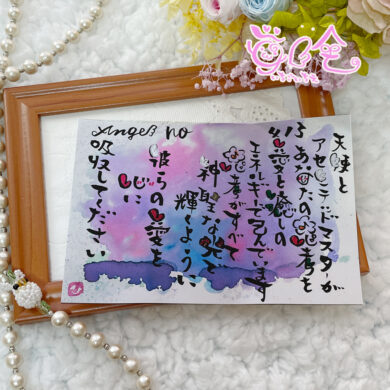 Angel no 13
天使と
アセンデッドマスターが
あなたの思考を
愛と癒しの
エネルギーで包んでいます
思考がすべて
神聖な光と
輝くように
彼らの愛を
心に
吸収してください